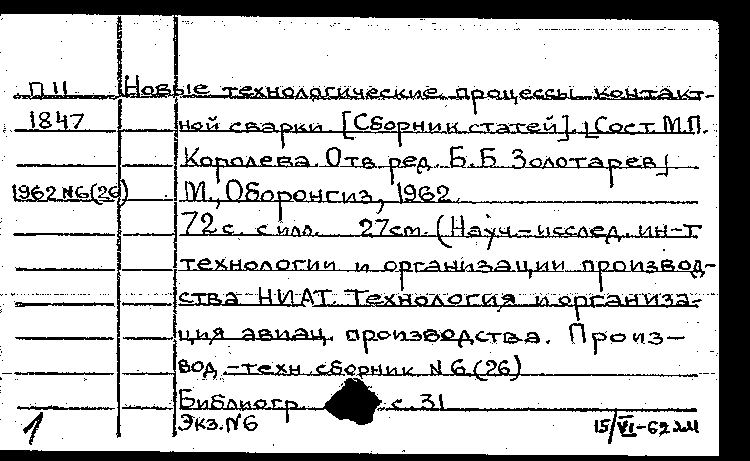 П 11 Новые технологические процессы контакт-
1847 ной сварки. [Сборник статей]. [Сост. М.П.
Королева. Отв. ред. Б.Б. Золотарев]
1962 №6(26) М., Оборонгиз, 1962.
72 с. с илл. 27 см. (Науч.-исслед. ин-т
технологии и организации производ-
ства НИАТ. Технология и организа-
ция авиац. производства. Произ-
вод.-техн. сборник №6 (26)
Библиогр. с. 31
1 Экз. №6 15/VI-62